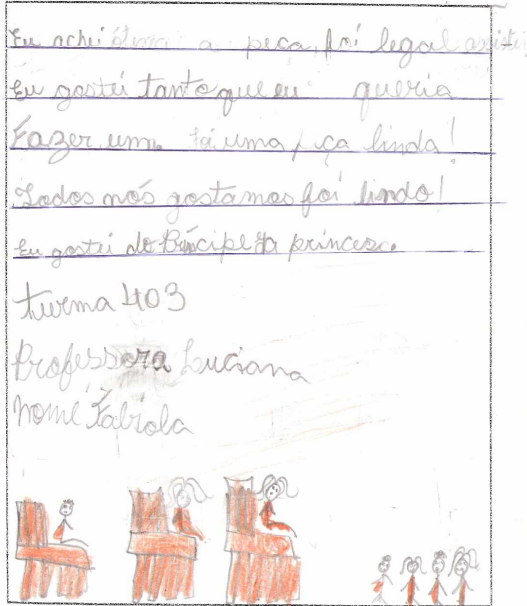 Eu achei ótima a peca, foi legal assistir
Eu gostei tanto que eu queria
Fazer uma foi uma peça linda!
Todos nós gostamos foi lindo!
Eu gostei do Príncipe da princesa.
turma 403
Professora Luciana
nome Fabíola